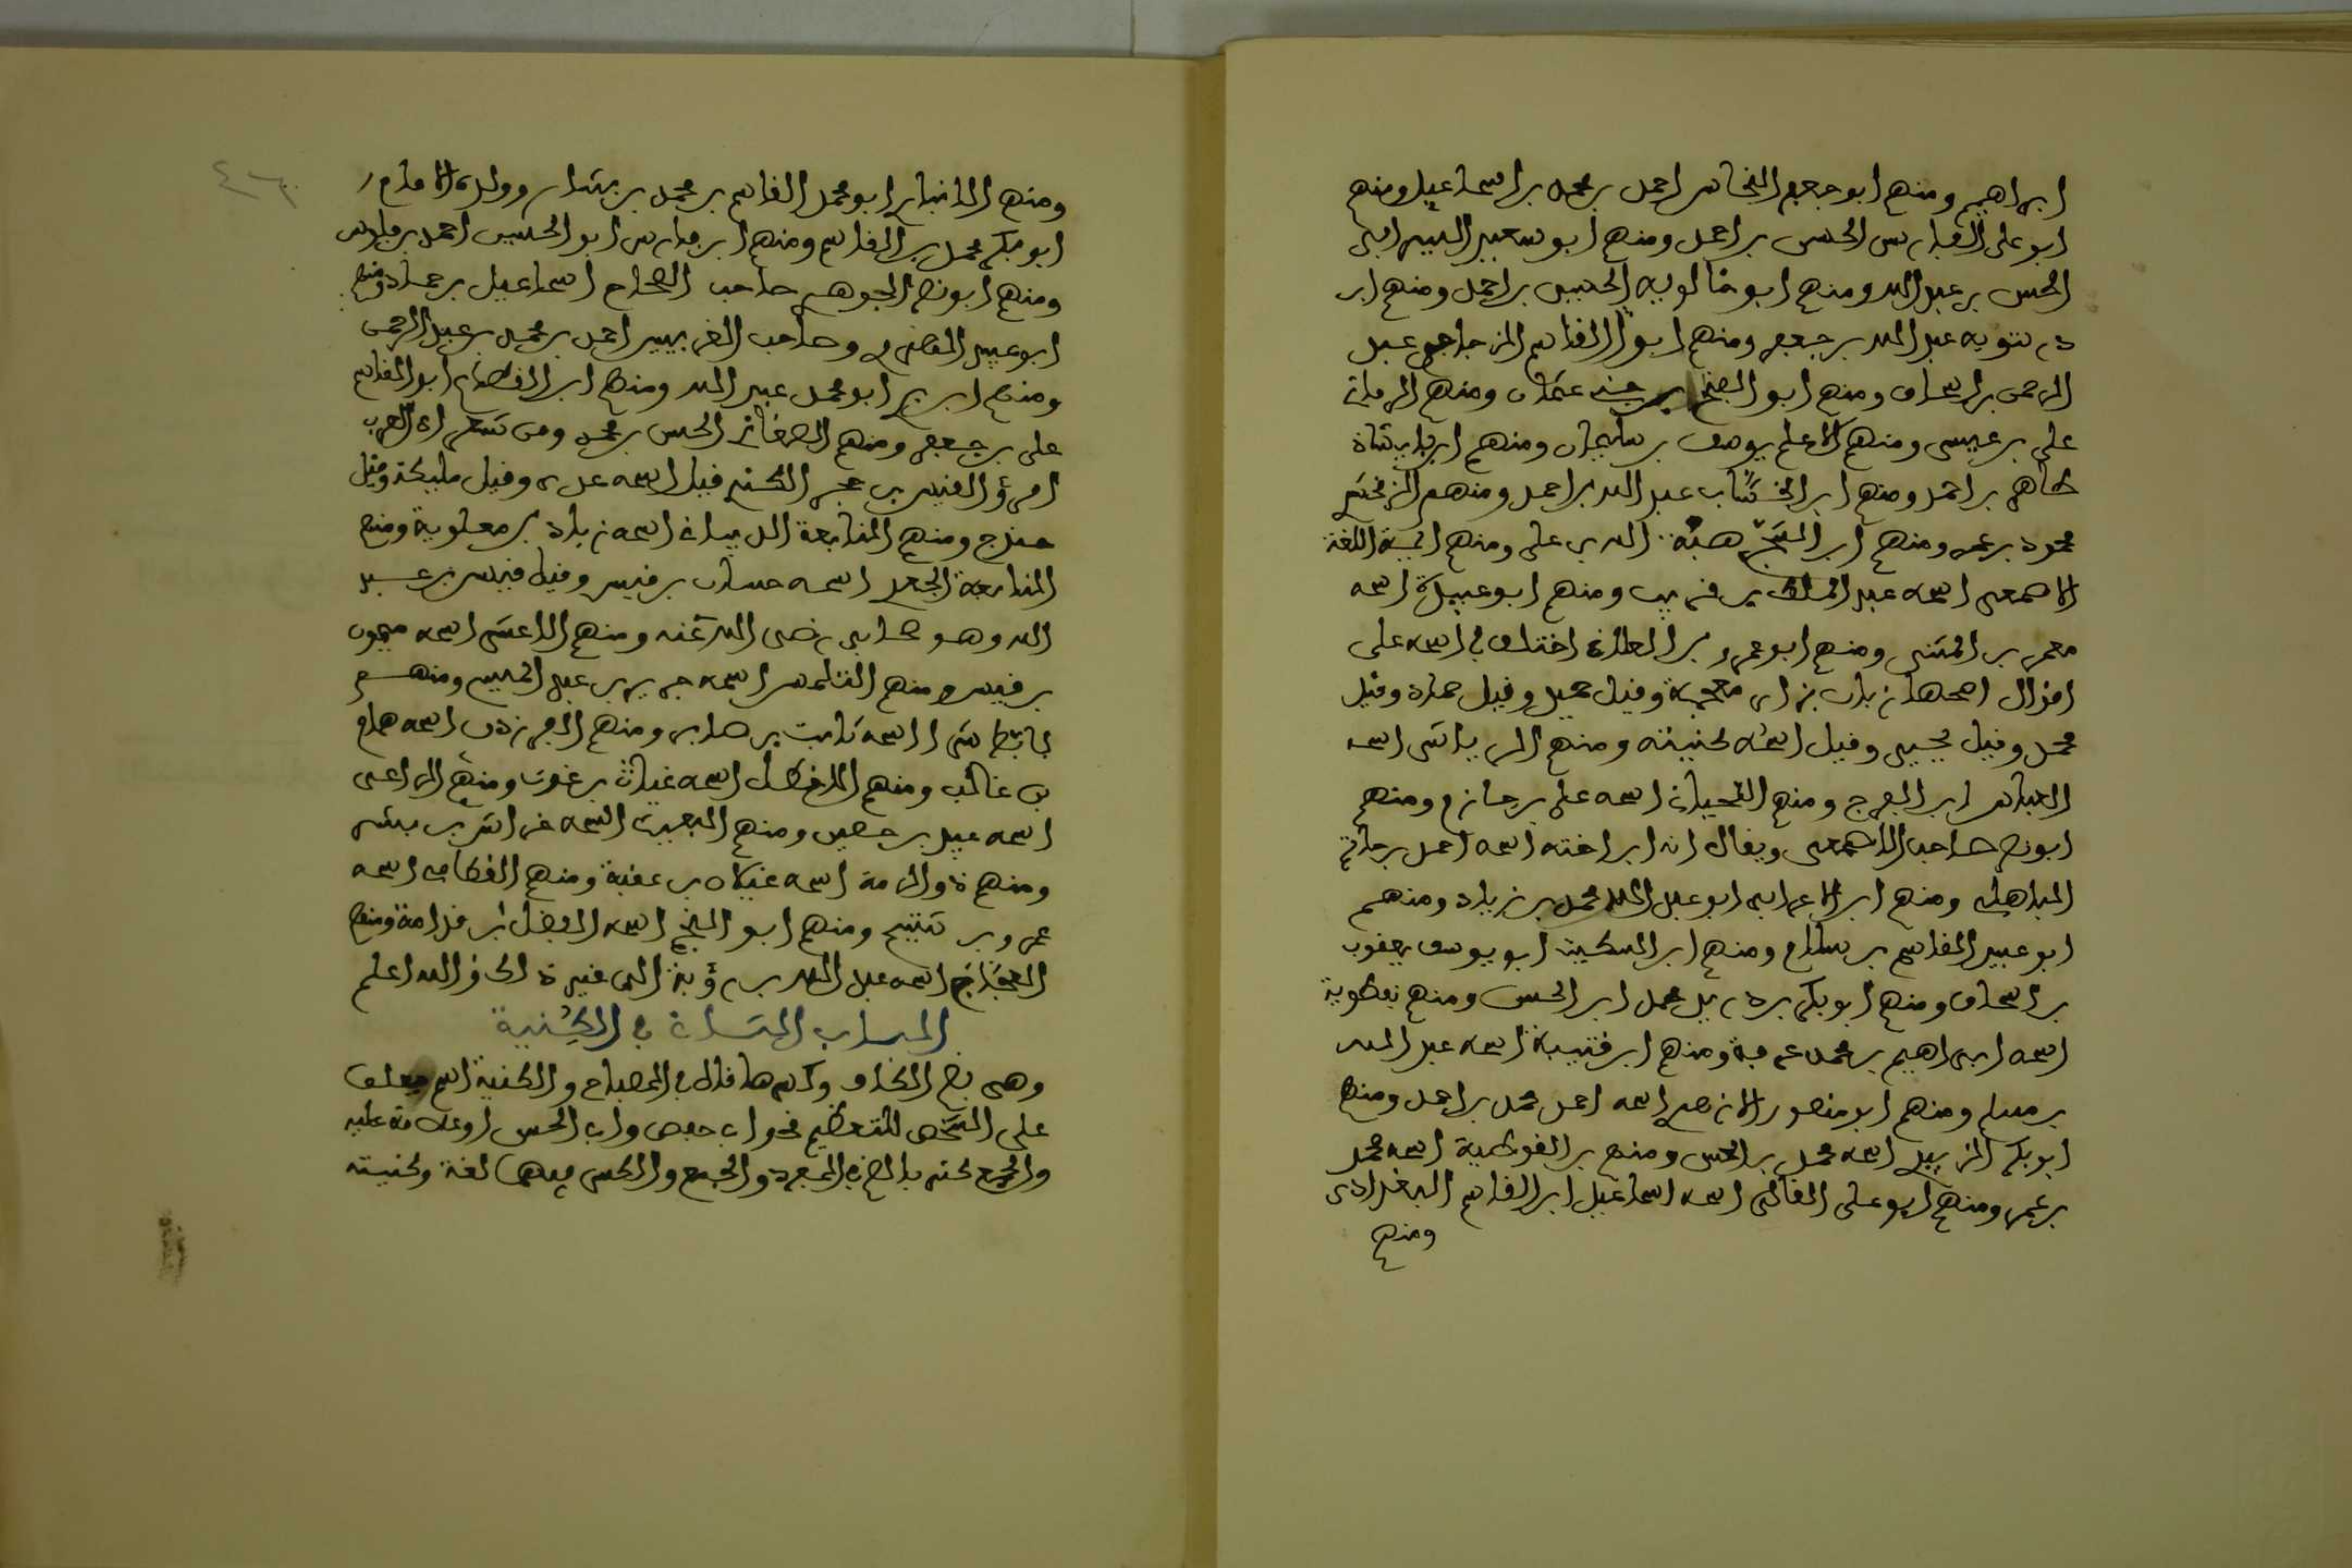 ابراهيم ومنهم ابو جعفر النحاس احمد بن محمد بن اسماعيل ومنهم
ابو على الفارس الحسن بن احمد ومنهم ابو سعيد السيرافى
الحسن بن عبد الله ومنهم ابو خالويه الحسين بن احمد ومنهم ابن
درستويه عبد الله بن جعفر ومنهم ابو القاسم الزجاجي عبد
الرحمن بن اسحاق ومنهم ابو الفتح بن جنى عثمان ومنهم الرمانى
على بن عيسى ومنهم الاعلم يوسف بن سليمان ومنهم ابن بابشاذ
طاهر بن احمد ومنهم ابن الخشاب عبد الله بن احمد ومنهم الزمخشرى
محمود بن عمر ومنهم ابن الشجرى هبة الله بن على ومنهم ائمة اللغة
الاصمعى اسمه عبد الملك بن قريب ومنهم ابو عبيدة اسمه
معمر بن المثنى ومنهم ابو عمرو بن العلاء اختلف في اسمه على
اقوال اصحها زبان بزاى معجمة وقيل حميد وقيل حماد وقيل
محمد وقيل يحيى وقيل اسمه كنيته ومنهم الرياشى اسمه
العباس ابن الفرج ومنهم اللحيانى اسمه على بن حازم ومنهم
ابو نصر صاحب الاصمعى ويقال انه ابن اخته اسمه احمد بن حاتم
الباهلى ومنهم ابن الاعرابى ابو عبد الله محمد بن زياد ومنهم
ابو عبيد القاسم بن سلام ومنهم ابن السكيت ابو يوسف يعقوب
بن اسحاق ومنهم ابو بكر بن دريد محمد ابن الحسن ومنهم نفطوية
اسمه ابراهيم بن محمد عرفة ومنهم ابن قتيبة اسمه عبد الله
بن مسلم ومنهم ابو منصور الازهرى اسمه احمد محمد بن احمد ومنهم
ابو بكر الزبيدى اسمه محمد بن الحسن ومنهم بن القوطية اسمه محمد
بن عمر ومنهم ابو على القالى اسمه اسماعيل ابن القاسم البغدادى
ومنهم
٤٦
ومنهم الانبارى ابو محمد القاسم بن محمد بن بشار وولده الامام
ابو بكر محمد بن القاسم ومنهم ابن فارس ابو الحسين احمد بن فارس
ومنهم ابو نصر الجوهرى صاحب الصحاح اسماعيل بن حماد ومنهم
ابو عبيد الهروى وصاحب الغريبين احمد بن محمد بن عبد الرحمن
ومنهم ابن برى ابو محمد عبد الله ومنهم ابن القطاع ابو القاسم
على بن جعفر ومنهم الصغانى الحسن بن محمد ومن شعراء العرب
امرؤ القيس بن حجر الكندى قيل اسمه عدى وقيل مليكة وقيل
حندج ومنهم النابغة الذبيانى اسمه زياد بن معاوية ومنهم
النابغة الجعدى اسمه حسان بن قيس وقيل قيس بن عبد
الله وهو صحابى رضى الله عنه ومنهم الاعشى اسمه ميمون
بن قيس ومنهم المتلمس اسمه جرير بن عبد المسيح ومنهم
تابط شرا اسمه ثابت بن جابر ومنهم الفرزدق اسمه همام
بن غالب ومنهم الاخطل اسمه غياث بن غوث ومنهم الراعى
اسمه عبيد بن حصين ومنهم البعيث اسمه خراش بن بشر
ومنهم ذو الرمة اسمه غيلان بن عقبة ومنهم القطامى اسمه
عمرو بن شييم ومنهم ابو النجم اسمه الفضل بن قدامة ومنهم
العجاج اسمه عبد الله بن رؤبة الى غير ذلك والله اعلم
الباب الثانى في الكنية
وهى بضم الكاف وكسرها قال في المصباح والكنية اسم يطلق
على الشخص للتعظيم نحو ابى حفص وابى الحسن او علامة عليه
والجمع كنى بالضم في المفرد والجمع والكسر فيهما لغة وكنيته